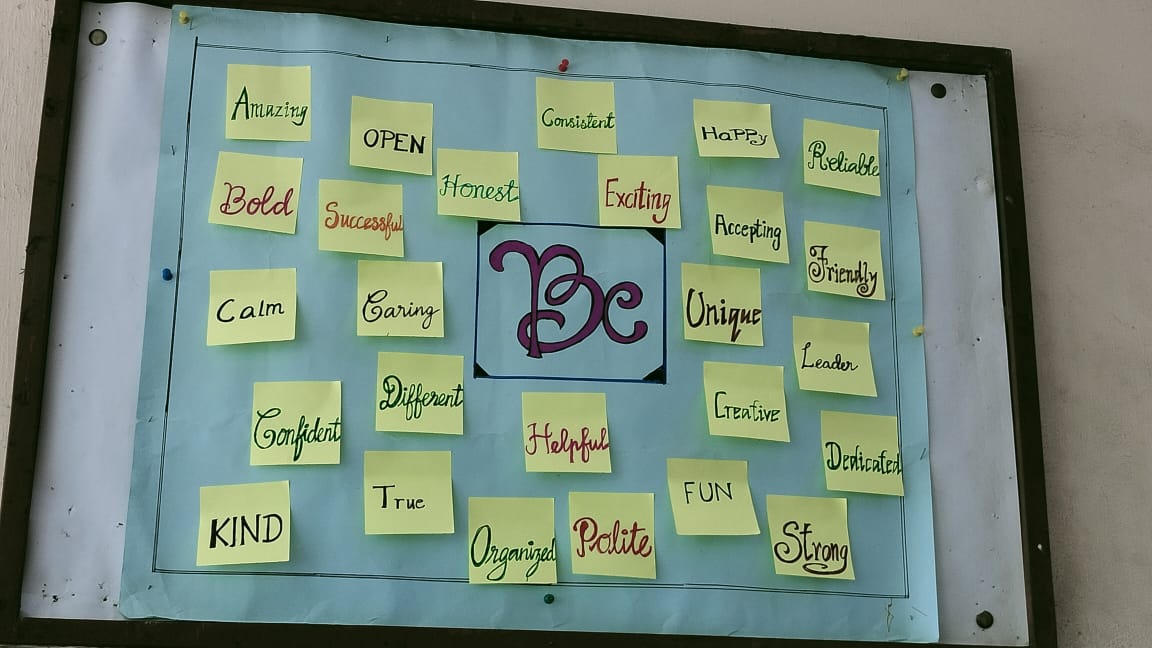 Amazing
OPEN
Consistent
HaPPy
Reliable
Bold
Successful
Honest
Exciting
Accepting
Friendly
Calm
Caring
Be
Unique
Leader
Confident
Different
Helpful
Creative
Dedicated
KIND
True
Organized
Polite
FUN
Strong